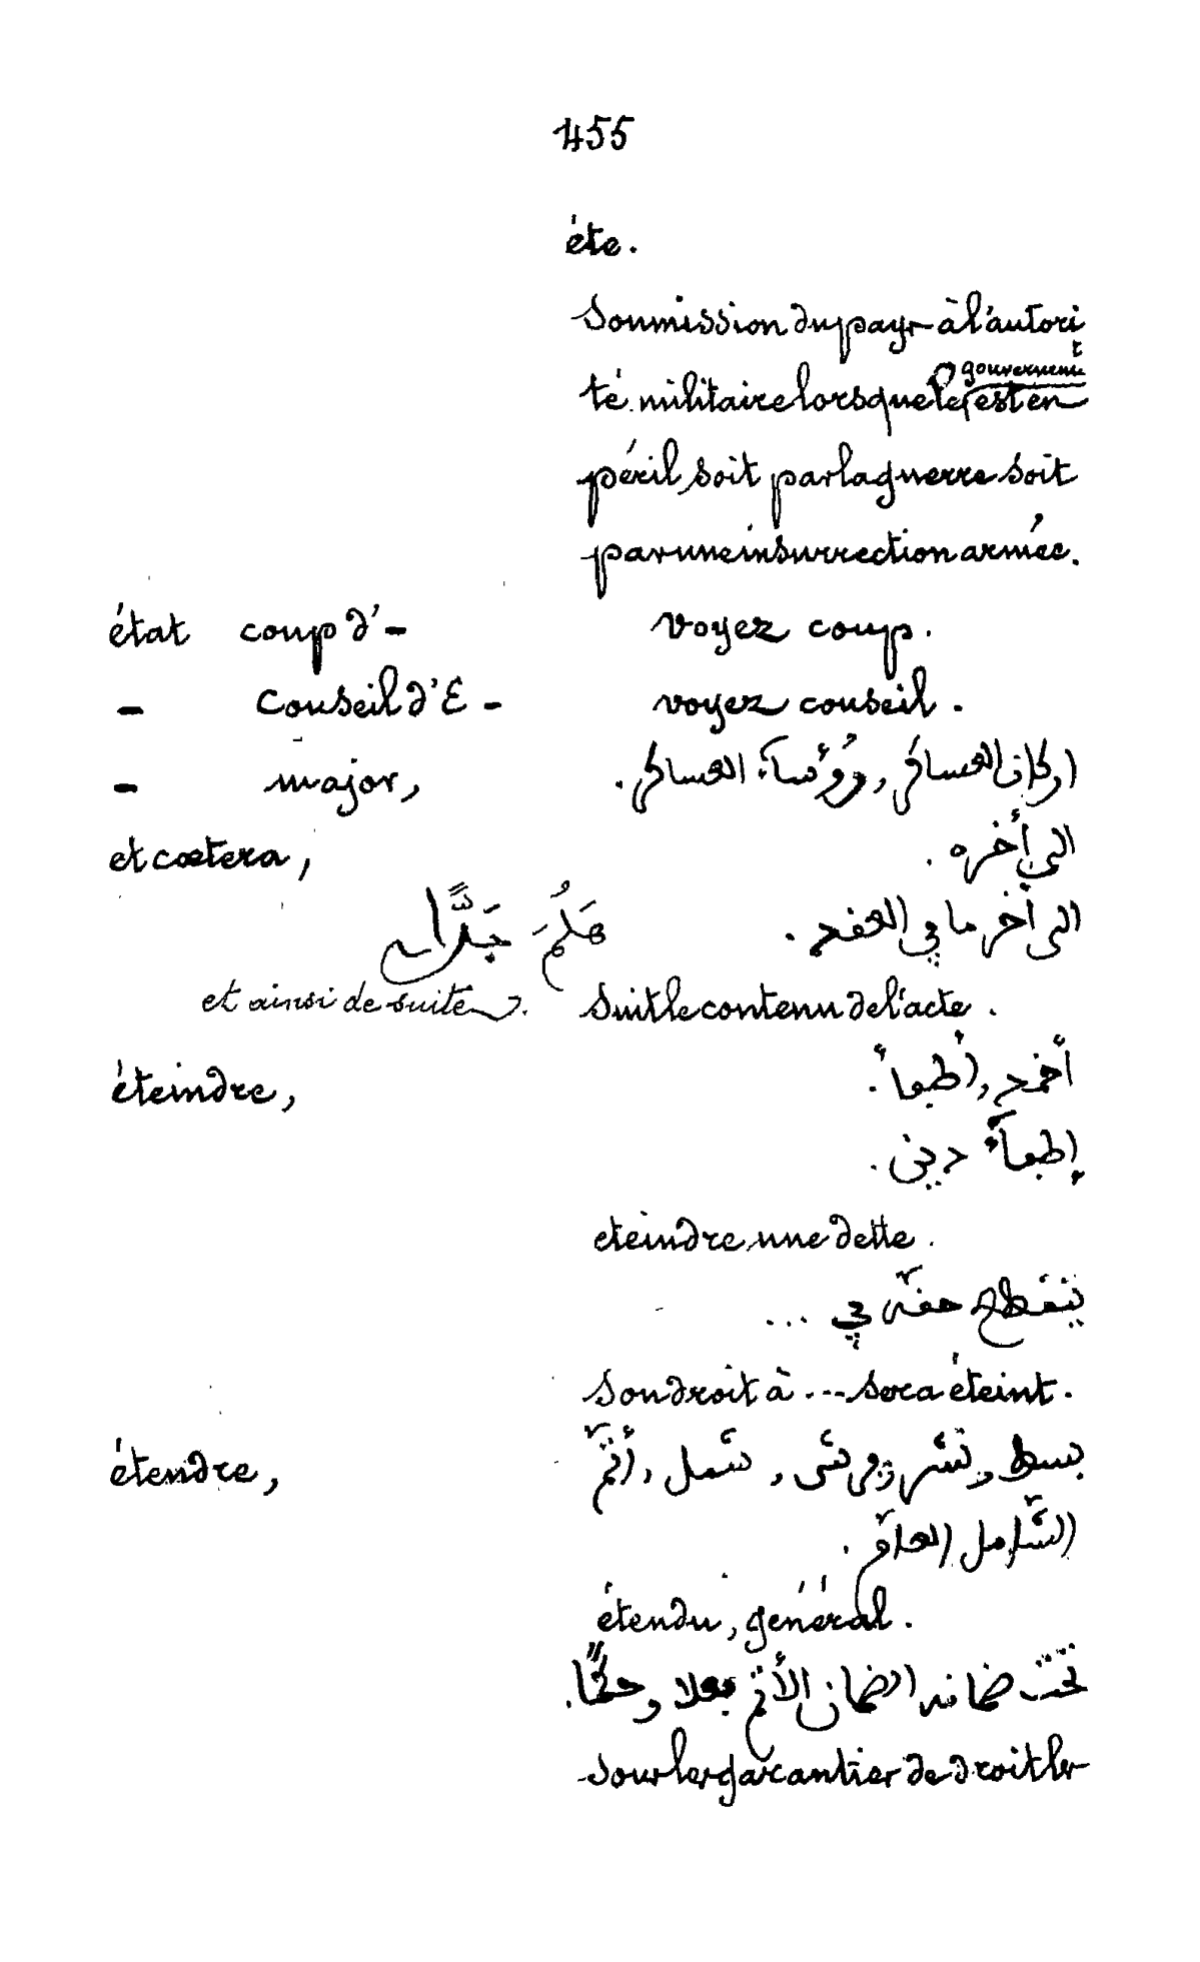 455
éte.
Soumission du pays à l'autori
té militaire lorsque le gouvernemt est en
péril soit par la guerre soit
par une insurrection armée.
état coup d'- voyez coup.
- Conseil d'E- voyez conseil.
- major, اركان العساكر, رُؤساء العساكر.
et cœtera, الى أخره.
الى أخر ما في العقد.
هَلُمَّ جَرًّا
et ainsi de suite. Suit le contenu de l'acte.
éteindre, أخمد, أطفأ.
إطفآء دين.
eteindre une dette.
ينقطع حقّه في ...
Son droit à ... sera éteint.
étendre, بسط, نشر, شمل, أتمّ
الشّامل العامّ.
étendu, général.
تحت ضمانه الضمان الأتمّ فعلا وحكمًا.
sous les garanties de droit les